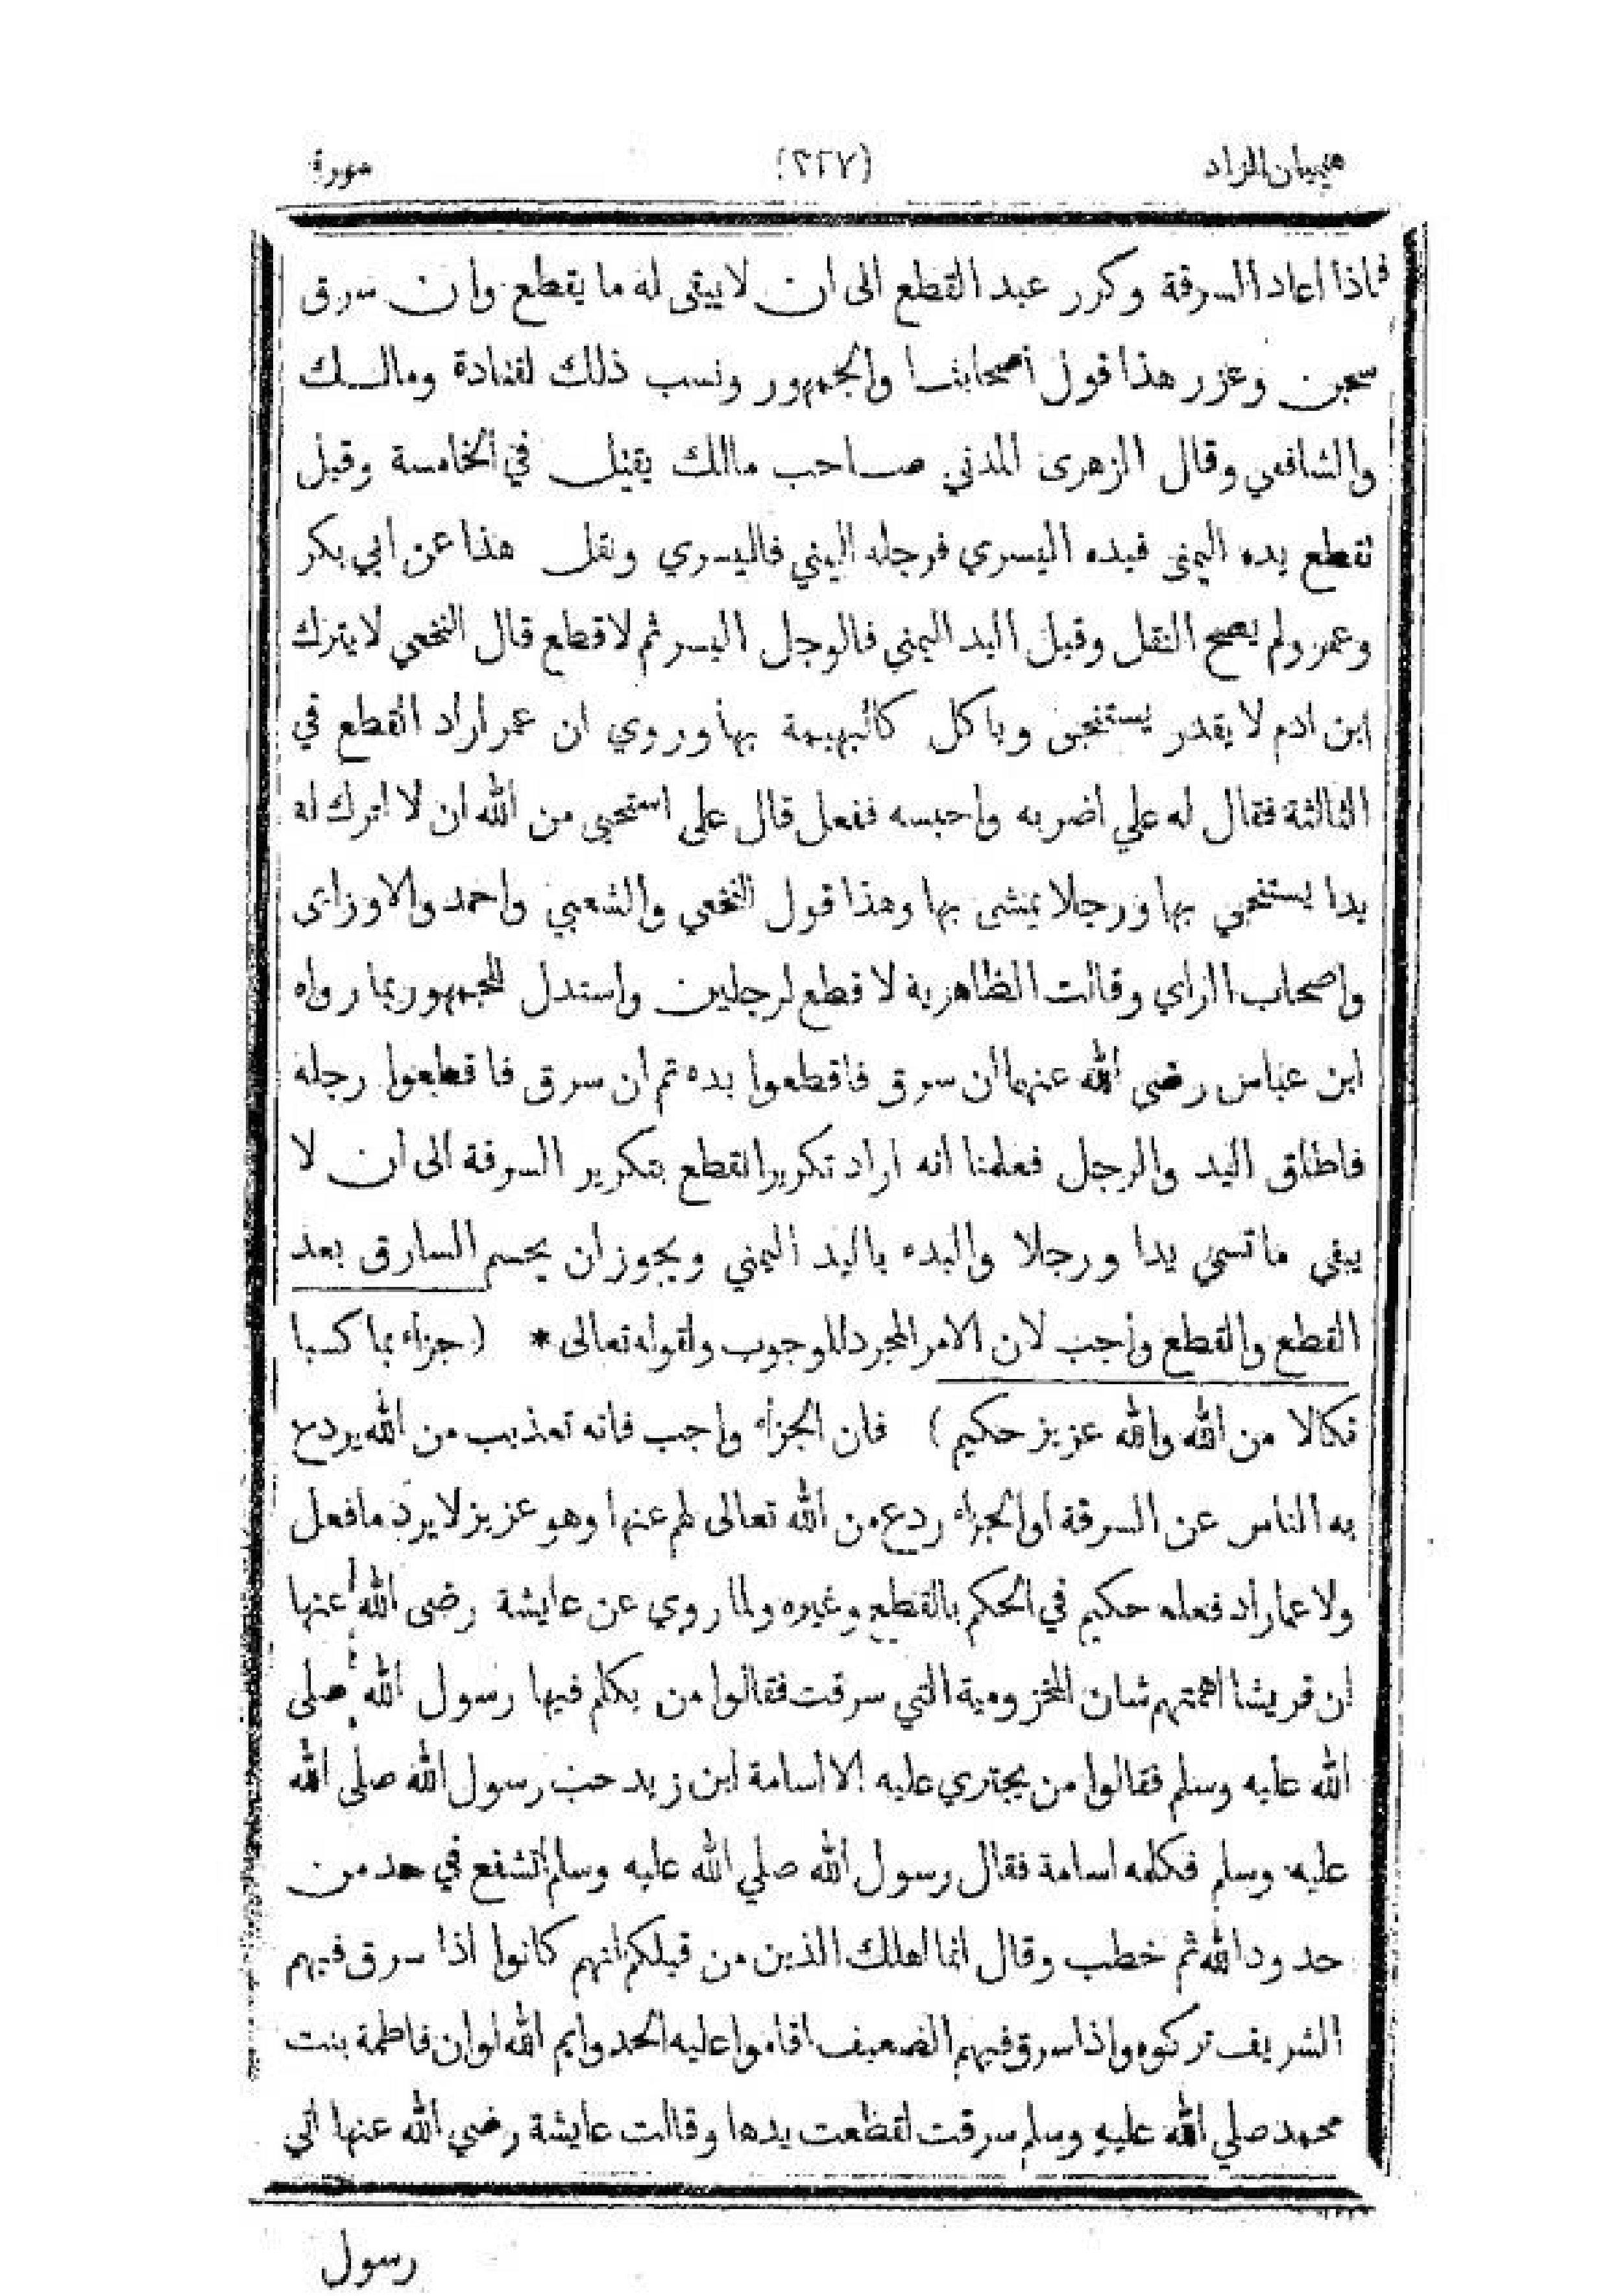 هيميان الزاد (٢٢٧) سورة
فاذا اعاد السرقة وكرر عيد القطع الى ان لا يبقى له ما يقطع وان سرق
سجن وعزر هذا قول أصحابنا والجمهور ونسب ذلك لقتادة ومالك
والشافعي وقال الزهرى المدني صاحب مالك يقتل في الخامسة وقيل
تقطع يده اليمنى فيده اليسري فرجله اليمني فاليسري ونقل هذا عن ابي بكر
وعمر ولم يصح النقل وقيل اليد اليمني فالرجل اليسر ثم لا قطع قال النخعي لا يترك
ابن ادم لا يقدر يستنجى وياكل كالبهيمة بها وروي ان عمر اراد القطع في
الثالثة فقال له علي اضربه واحبسه ففعل قال على استحيي من الله ان لا اترك له
يدا يستنجي بها ورجلا يمشى بها وهذا قول النخعي والشعبي واحمد والاوزاى
واصحاب الراي وقالت الظاهرية لا قطع لرجلين واستدل للجمهور بما رواه
ابن عباس رضي الله عنهما ان سرق فاقطعوا يده ثم ان سرق فاقطعوا رجله
فاطلق اليد والرجل فعلمنا انه اراد تكرير القطع بتكرير السرقة الى ان لا
يبقي ما تسمى يدا ورجلا والبدء باليد اليمني ويجوز ان يحسم السارق بعد
القطع والقطع واجب لان الامر المجرد للوجوب ولقوله تعالى * ( جزاء بما كسبا
نكالا من الله والله عزيز حكيم ) فان الجزاء واجب فانه تعذيب من الله يردع
به الناس عن السرقة او الجزاء ردع من الله تعالى لهم عنها وهو عزيز لا يرد ما فعل
ولا عما راد فعله حكيم في الحكم بالقطع وغيره ولما روي عن عايشة رضى الله عنها
ان قريشا اهمتهم شان المخزومية التي سرقت فقالوا من يكلم فيها رسول الله صلى
الله عليه وسلم فقالوا من يجتري عليه الا أسامة ابن زيد حب رسول الله صلى الله
عليه وسلم فكلمه اسامة فقال رسول الله صلي الله عليه وسلم اتشفع في حد من
حدود الله ثم خطب وقال انما اهلك الذين من قبلكم انهم كانوا اذا سرق فيهم
الشريف تركوه واذا سرق فيهم الضعيف اقاموا عليه الحد وايم الله لو ان فاطمة بنت
محمد صلي الله عليه وسلم سرقت لقطعت يدها وقالت عايشة رضي الله عنها اتي
رسول